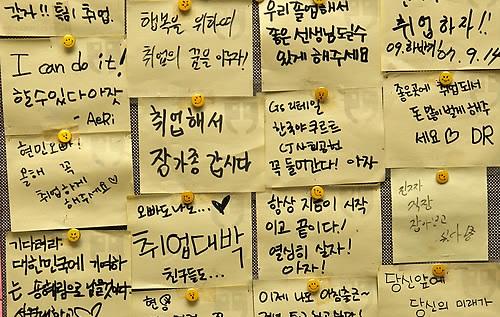 각자!! 틈이 취업.
행복을 위하여
취업의 꿈을 이루자!
우리 졸업해서
좋은 선생님 될 수
있게 해주세요
취업하자!!
09.하반기
09.9.14
I can do it!
할수있다아잣
- AeRi
취업해서
장가좀 갑시다
GS리테일
한국야쿠르트
CJ 시스템
꼭 들어간다! 아자
좋은곳에 취업되서
돈 많이벌게 해주
세요♡ DR
현민오빠!
올해 꼭
취업하게
해주세요♡
오빠도 나도...♥
취업대박
친구들도...
항상 지금이 시작
이고 끝이다!
열심히 살자!
아자!
진짜
직장
잡아보고
싶다
기다려라.
대한민국에 기여하
는
현영
이제 나도
당신앞에
당신의 미래가